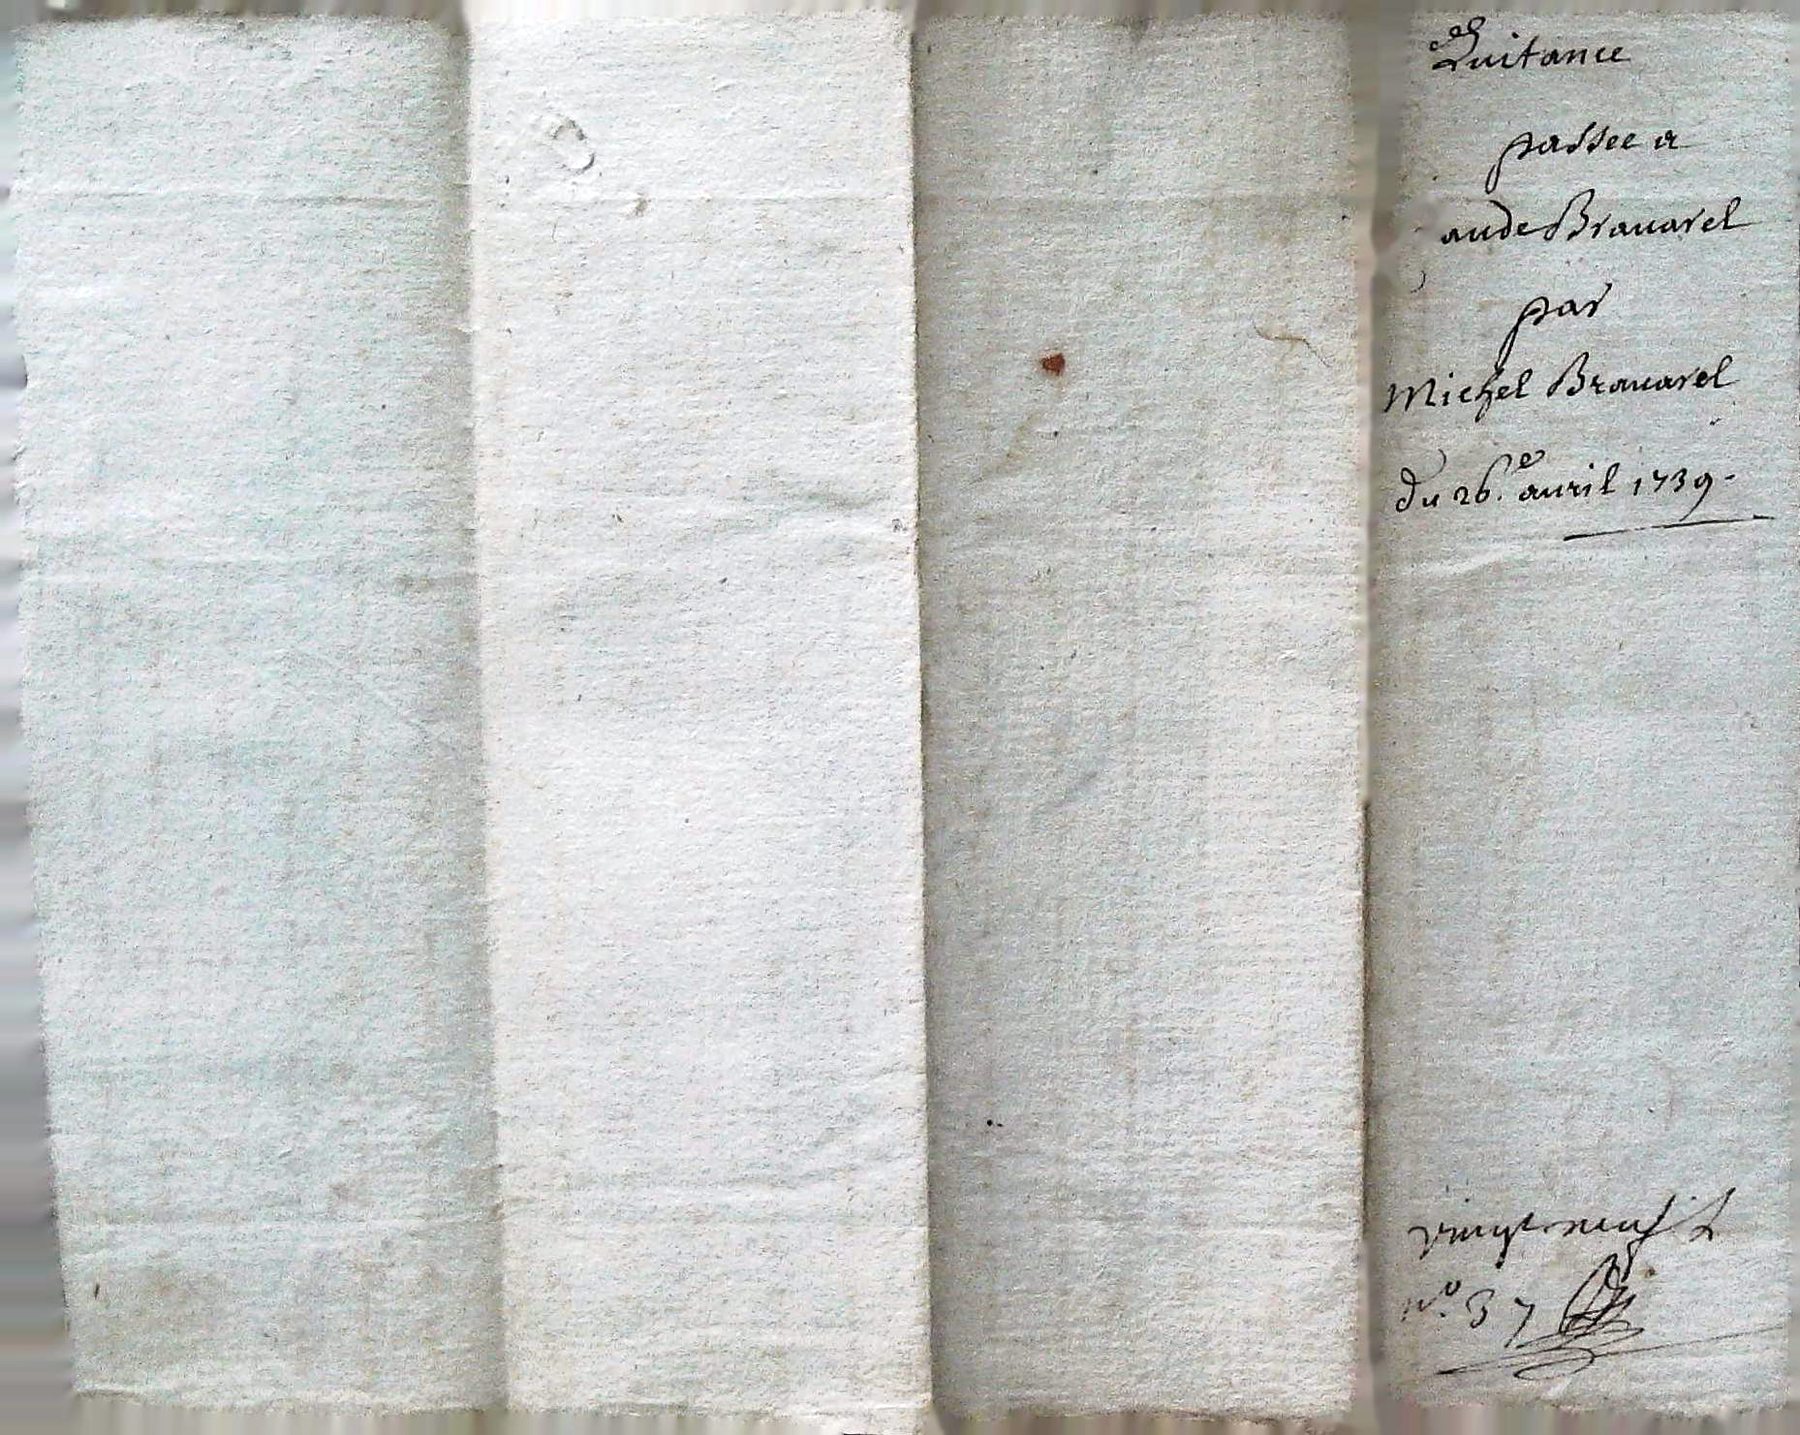 Quitance
passee a
aude Brauarel
par
Michel Brauarel
du 26.e auril 1739.
vingt neuf
n.o 37